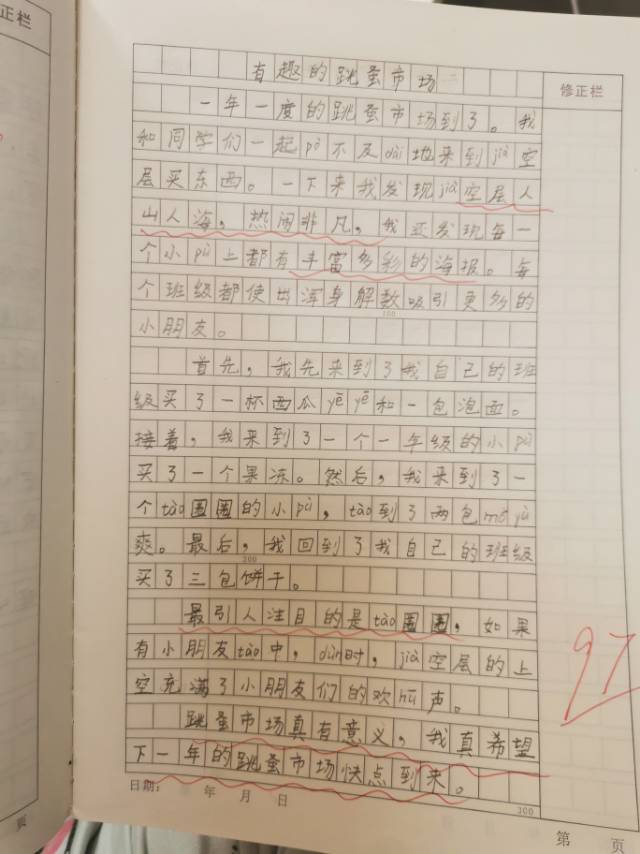 修正栏
正栏
有趣的跳蚤市场
一年一度的跳蚤市场到了。我
和同学们一起pò不及dài地来到jià空
层买东西。一下来我发现jià空层人
山人海，热闹非凡，我还发现每一
个小pù上都有丰富多彩的海报。每
个班级都使出浑身解数吸引更多的
小朋友。
100
首先，我先来到了我自己的班
级买了一杯西瓜yē yē和一包泡面。
接着，我来到了一个一年级的小pù
买了一个果冻。然后，我来到了一
个tào圈圈的小pù，tào到了两包má jú
爽。最后，我回到了我自己的班级
200
买了三包饼干。
最引人注目的是tào圈圈，如果
有小朋友tào中，dùn时，jià空层的上
空充满了小朋友们的欢hū声。
跳蚤市场真有意义，我真希望
下一年的跳蚤市场快点到来。
97
日期： 年 月 日
300
第 页
页